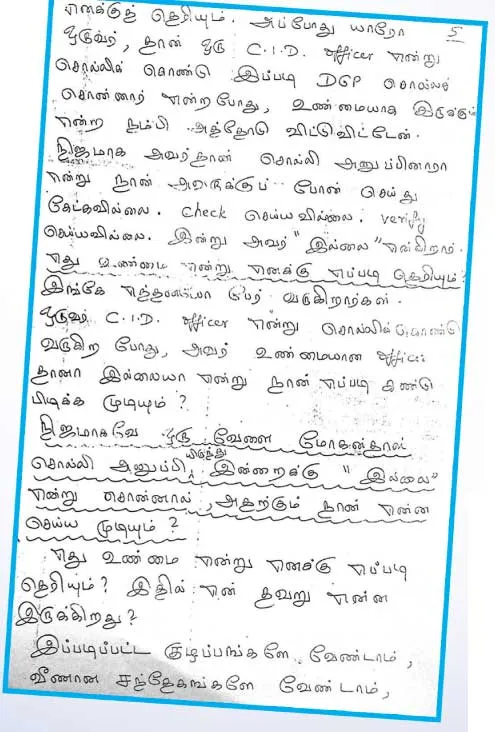 எனக்குத் தெரியும். அப்போது யாரோ 5
ஒருவர், தான் ஒரு C.I.D. officer என்று
சொல்லிக் கொண்டு இப்படி DGP சொல்லச்
சொன்னார் என்ற போது, உண்மையாக இருக்கும்
என்ற நம்பி அத்தோடு விட்டுவிட்டேன்.
நிஜமாக அவர்தான் சொல்லி அனுப்பினாரா
என்று நான் அவருக்குப் போன் செய்து
கேட்கவில்லை. check செய்யவில்லை. verify
செய்யவில்லை. இன்று அவர் "இல்லை" என்கிறார்.
எது உண்மை என்று எனக்கு எப்படி தெரியும்?
இங்கே எத்தனையோ பேர் வருகிறார்கள்.
ஒருவர் C.I.D. officer என்று சொல்லிக் கொண்டு
வருகிற போது, அவர் உண்மையான officer
தானா இல்லையா என்று நான் எப்படி கண்டு
பிடிக்க முடியும்?
நிஜமாகவே ஒரு வேளை மோகன்தாஸ்
சொல்லி அனுப்பியிருந்து, இன்றைக்கு "இல்லை"
என்று சொன்னால், அதற்கும் நான் என்ன
செய்ய முடியும்?
எது உண்மை என்று எனக்கு எப்படி
தெரியும்? இதில் என் தவறு என்ன
இருக்கிறது?
இப்படிப்பட்ட குழப்பங்களே வேண்டாம்,
வீணான சந்தேகங்களே வேண்டாம்,